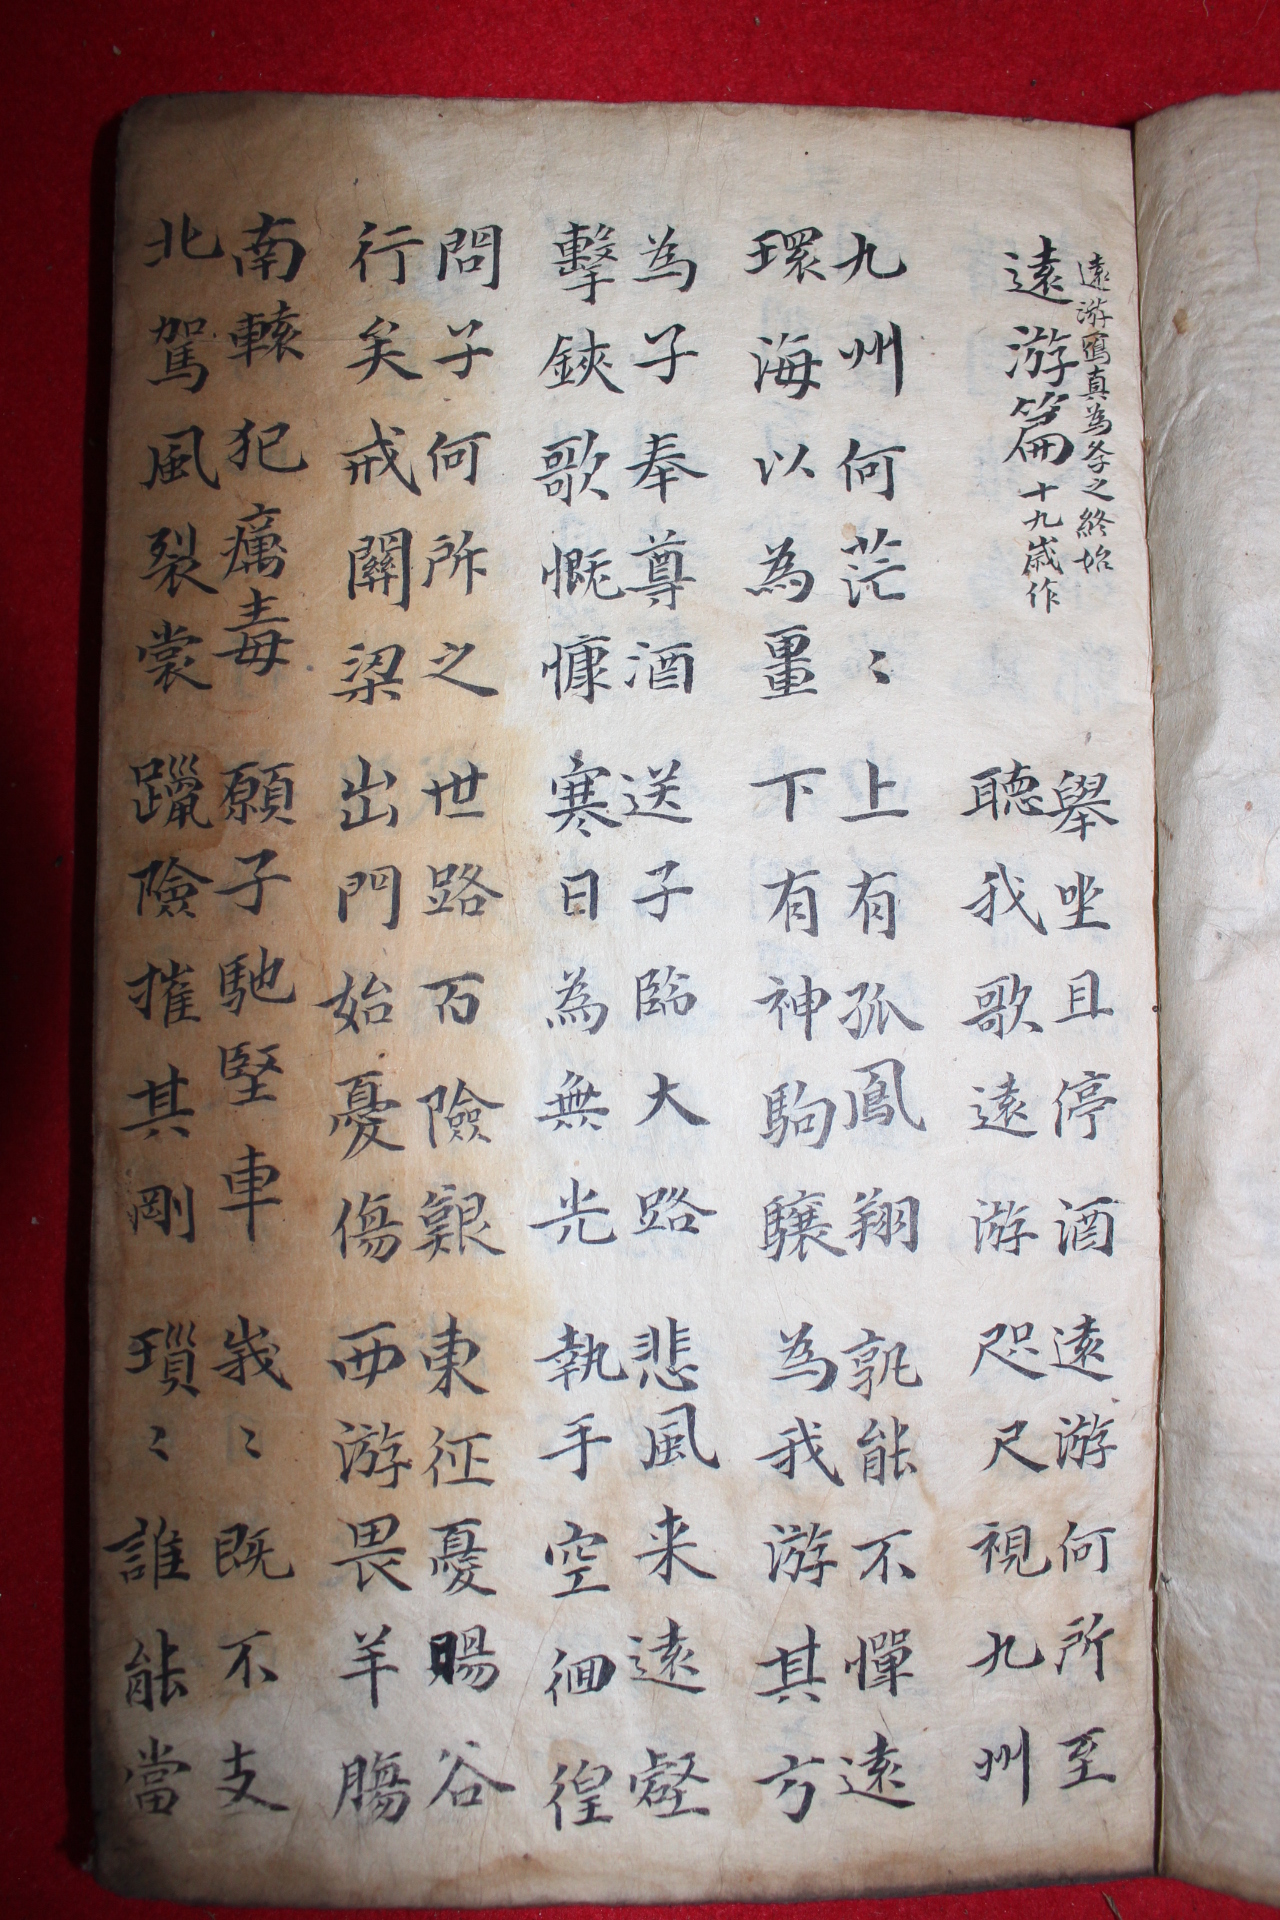 遠游寫真為之終始
遠游篇 十九歲作
舉坐且停酒
聽我歌遠游
遠游何所至
咫尺視九州
九州何茫〻
環海以為畺
上有孤鳳翔
下有神駒驤
孰能不憚遠
為我游其方
為子奉尊酒
擊鋏歌慨慷
送子臨大路
寒日為無光
悲風来遠壑
執手空徊徨
問子何所之
行矣戒關梁
世路百險艱
出門始憂傷
東征憂暘谷
西游畏羊膓
南轅犯癘毒
北駕風裂裳
願子馳堅車
躐險摧其剛
峩〻既不支
瑣〻誰能當